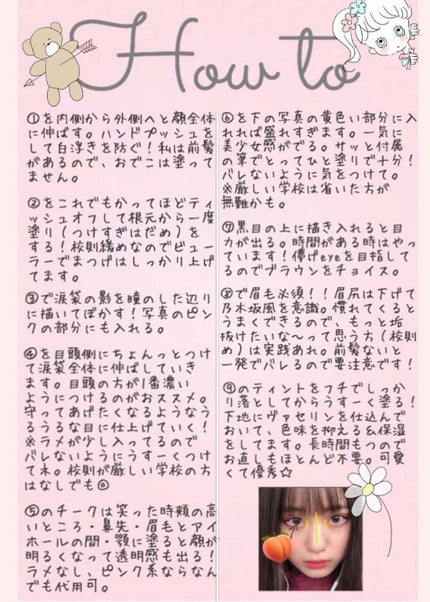 How to
①を内側から外側へと顔全体
に伸ばす。ハンドプッシュを
して白浮きを防ぐ！私は前髪
があるので、おでこは塗って
ません。
②をこれでもかってほどティ
ッシュオフして根元から一度
塗り(つけすぎはだめ)を
する！校則緩めなのでビュー
ラーでまつげはしっかり上げ
てます。
③で涙袋の影を瞳のした辺り
に描いてぼかす！写真のピン
クの部分にも入れる。
④を目頭側にちょんっとつけ
て涙袋全体に伸ばしていき
ます。目頭の方が1番濃い
ようにつけるのがおススメ。
守ってあげたくなるようなう
るうるな目に仕上げていく！
※ラメが少し入ってるので
バレないようにうすーくつけ
て木。校則が厳しい学校の方
はなしでも◎
⑤のチークは笑った時頬の高
いところ・鼻先・眉毛とアイ
ホールの間・顎に塗ると顔が
明るくなって透明感も出る！
ラメなし、ピンク系ならなん
でも代用可。
⑥を下の写真の黄色い部分に入
れれば盛れすぎます。一気に
美少女感がでる。サッと付属
の筆でとってひと塗りで十分！
バレないように気をつけて。
※厳しい学校は省いた方が
無難かも。
⑦黒目の上に描き入れると目
力が出る。時間がある時はやっ
ています！儚げeyeを目指して
るのでブラウンをチョイス。
⑧で眉も必須！！眉尻は下げて
乃木坂風を意識。慣れてくると
うまくできるので、もっと垢
抜けたいな〜って思う方(校則
め)は実践あれ。前髪ないと
一発でバレるので要注意です！
⑨のティントをフチでしっか
り落としてからうすーく塗る！
下地にヴァセリンを仕込んで
おいて、色味を抑える&保湿
をしてます。長時間もつので
お直しもほとんど不要。可愛
くて優秀☆